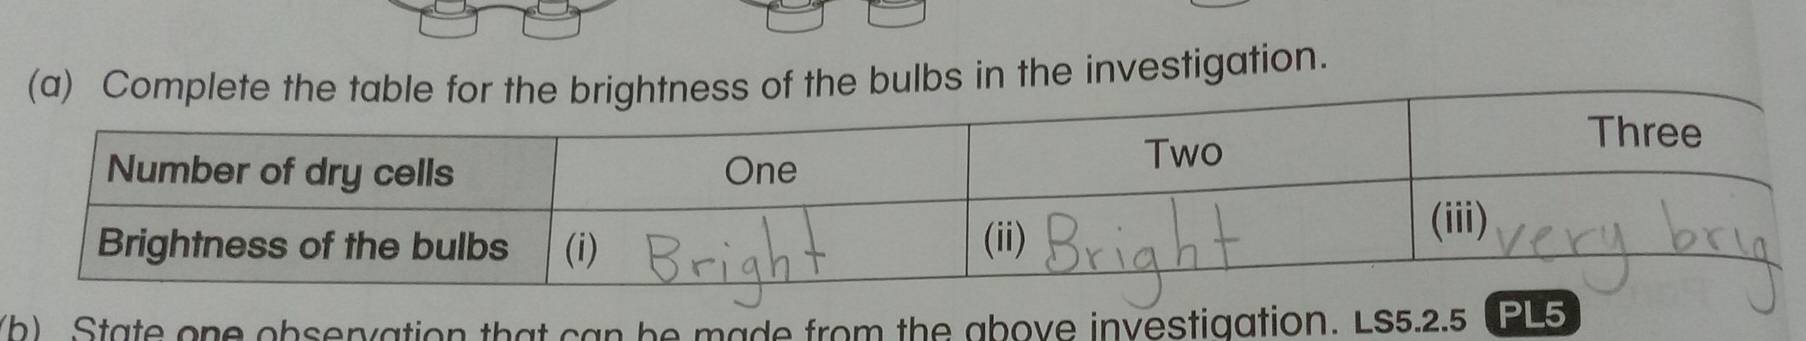 (a) Complete the table for the brightness of the bulbs in the investigation.
Number of dry cells One Two Three
Brightness of the bulbs (i) Bright (ii) Bright (iii) very brig
(b) State one observation that can be made from the above investigation. LS5.2.5 PL5